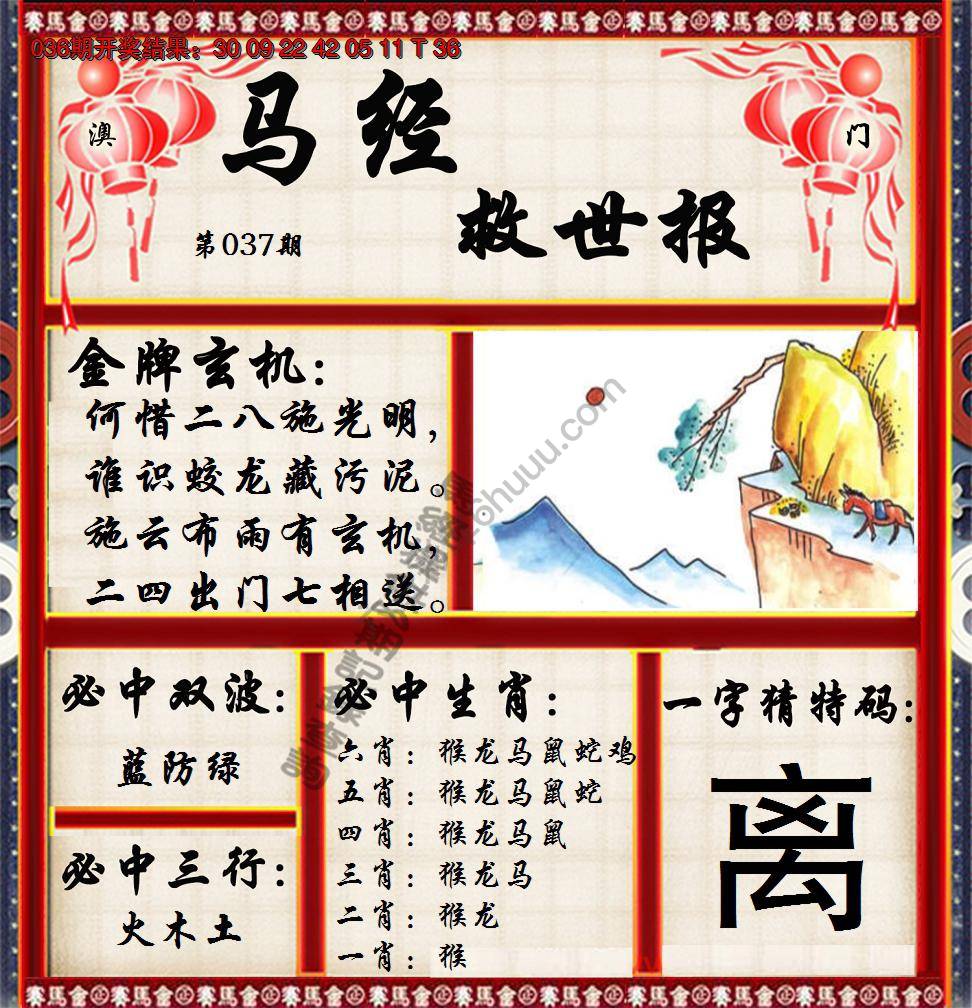 賽馬會
036期开奖结果：30 09 22 42 05 11 T 36
澳 门
马经
救世报
第037期
金牌玄机：
何惜二八施光明，
谁识蛟龙藏污泥。
施云布雨有玄机，
二四出门七相送。
必中双波：
蓝防绿
必中三行：
火木土
必中生肖：
六肖：猴龙马鼠蛇鸡
五肖：猴龙马鼠蛇
四肖：猴龙马鼠
三肖：猴龙马
二肖：猴龙
一肖：猴
一字猜特码：
离